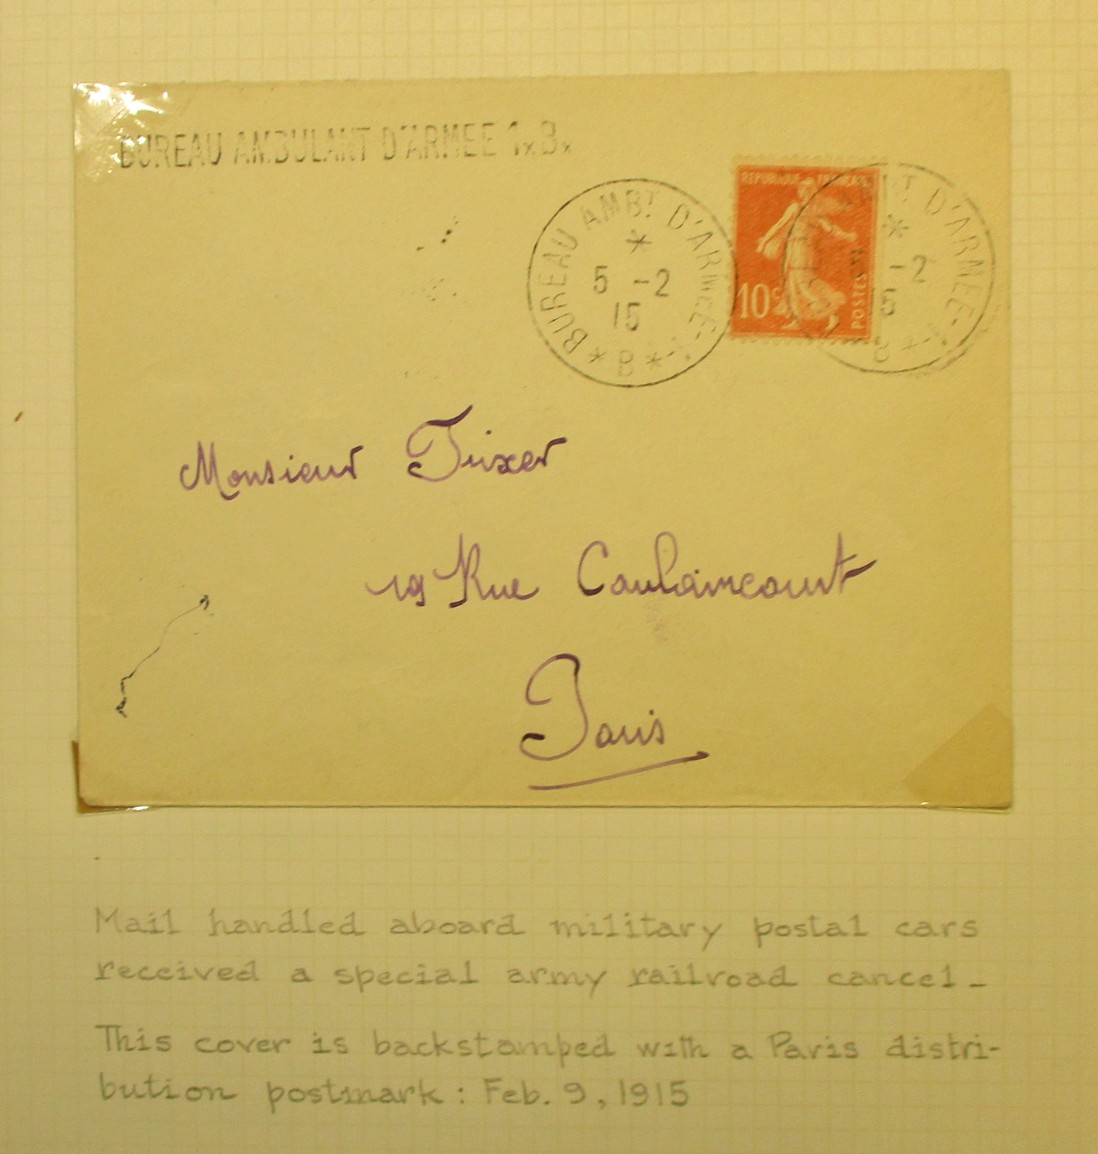 BUREAU AMBULANT D'ARMEE 1 B
BUREAU AMBT D'ARMEE-1-
*
5 -2
15
* B *
REPUBLIQUE FRANÇAISE
10c
POSTES
D'ARMEE-1-
*
-2
5
B *
Monsieur Tixer
19 Rue Caulaincourt
Paris
Mail handled aboard military postal cars
received a special army railroad cancel-
This cover is backstamped with a Paris distri-
bution postmark: Feb. 9, 1915